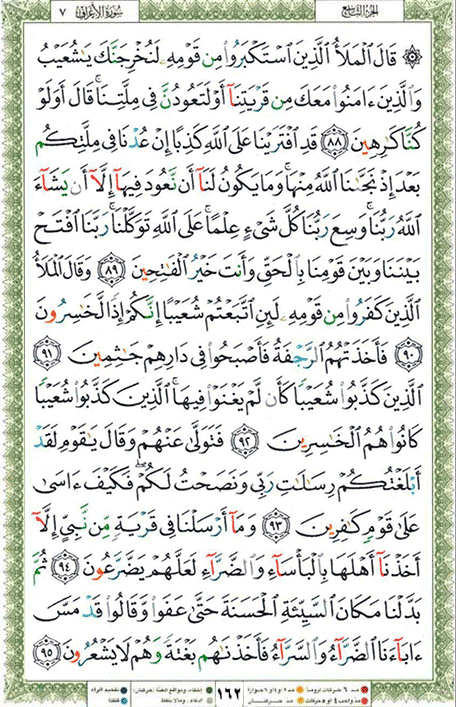 الجزء التاسع سورة الأعراف ٧
۞ قَالَ ٱلْمَلَأُ ٱلَّذِينَ ٱسْتَكْبَرُوا۟ مِن قَوْمِهِۦ لَنُخْرِجَنَّكَ يَٰشُعَيْبُ
وَٱلَّذِينَ ءَامَنُوا۟ مَعَكَ مِن قَرْيَتِنَآ أَوْ لَتَعُودُنَّ فِى مِلَّتِنَا ۚ قَالَ أَوَلَوْ
كُنَّا كَٰرِهِينَ ﴿٨٨﴾ قَدِ ٱفْتَرَيْنَا عَلَى ٱللَّهِ كَذِبًا إِنْ عُدْنَا فِى مِلَّتِكُم
بَعْدَ إِذْ نَجَّىٰنَا ٱللَّهُ مِنْهَا ۚ وَمَا يَكُونُ لَنَآ أَن نَّعُودَ فِيهَآ إِلَّآ أَن يَشَآءَ
ٱللَّهُ رَبُّنَا ۚ وَسِعَ رَبُّنَا كُلَّ شَىْءٍ عِلْمًا ۚ عَلَى ٱللَّهِ تَوَكَّلْنَا ۚ رَبَّنَا ٱفْتَحْ
بَيْنَنَا وَبَيْنَ قَوْمِنَا بِٱلْحَقِّ وَأَنتَ خَيْرُ ٱلْفَٰتِحِينَ ﴿٨٩﴾ وَقَالَ ٱلْمَلَأُ
ٱلَّذِينَ كَفَرُوا۟ مِن قَوْمِهِۦ لَئِنِ ٱتَّبَعْتُمْ شُعَيْبًا إِنَّكُمْ إِذًا لَّخَٰسِرُونَ
﴿٩٠﴾ فَأَخَذَتْهُمُ ٱلرَّجْفَةُ فَأَصْبَحُوا۟ فِى دَارِهِمْ جَٰثِمِينَ ﴿٩١﴾
ٱلَّذِينَ كَذَّبُوا۟ شُعَيْبًا كَأَن لَّمْ يَغْنَوْا۟ فِيهَا ۚ ٱلَّذِينَ كَذَّبُوا۟ شُعَيْبًا
كَانُوا۟ هُمُ ٱلْخَٰسِرِينَ ﴿٩٢﴾ فَتَوَلَّىٰ عَنْهُمْ وَقَالَ يَٰقَوْمِ لَقَدْ
أَبْلَغْتُكُمْ رِسَٰلَٰتِ رَبِّى وَنَصَحْتُ لَكُمْ ۖ فَكَيْفَ ءَاسَىٰ
عَلَىٰ قَوْمٍ كَٰفِرِينَ ﴿٩٣﴾ وَمَآ أَرْسَلْنَا فِى قَرْيَةٍ مِّن نَّبِىٍّ إِلَّآ
أَخَذْنَآ أَهْلَهَا بِٱلْبَأْسَآءِ وَٱلضَّرَّآءِ لَعَلَّهُمْ يَضَّرَّعُونَ ﴿٩٤﴾ ثُمَّ
بَدَّلْنَا مَكَانَ ٱلسَّيِّئَةِ ٱلْحَسَنَةَ حَتَّىٰ عَفَوا۟ وَّقَالُوا۟ قَدْ مَسَّ
ءَابَآءَنَا ٱلضَّرَّآءُ وَٱلسَّرَّآءُ فَأَخَذْنَٰهُم بَغْتَةً وَهُمْ لَا يَشْعُرُونَ ﴿٩٥﴾
١٦٢